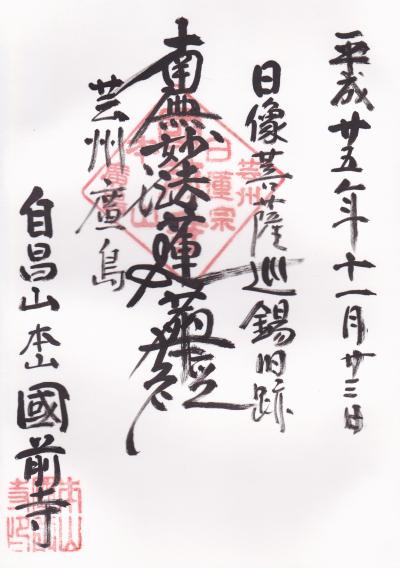 平成廿五年十一月廿三日
日像菩薩巡錫旧跡
南無妙法蓮華経
芸州廣島
自昌山本山國前寺
芸州
日蓮宗